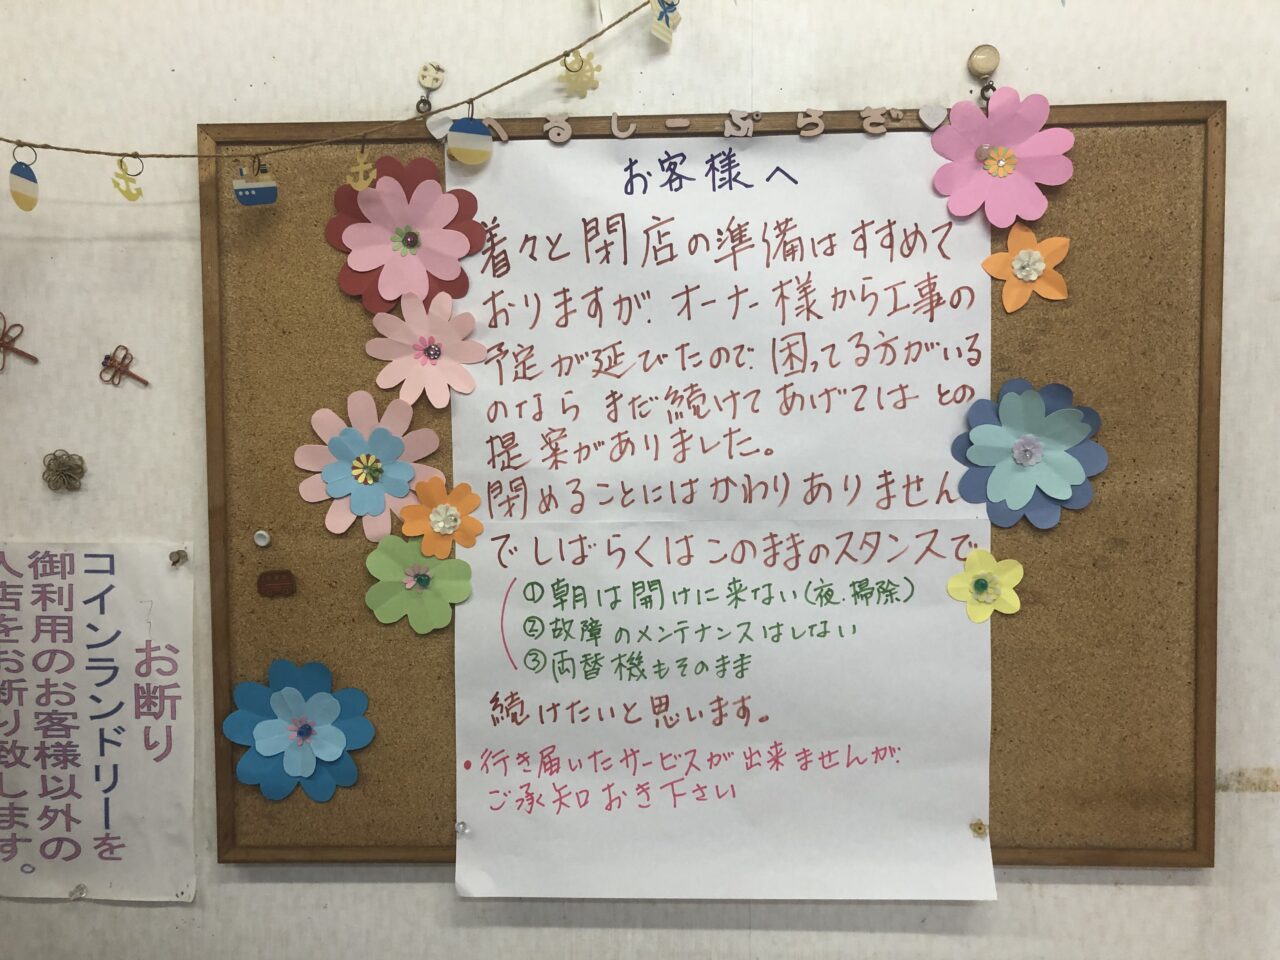 へるしーぷらざ
お客様へ
着々と閉店の準備はすすめて
おりますが、オーナー様から工事の
予定が延びたので、困ってる方がいる
のなら まだ続けてあげては との
提案がありました。
閉めることにはかわりありません
でしばらくはこのままのスタンスで
①朝は開けに来ない(夜.掃除)
②故障のメンテナンスはしない
③両替機もそのまま
続けたいと思います。
•行き届いたサービスが出来ませんが、
ご承知おき下さい
お断り
コインランドリーを
御利用のお客様以外の
入店をお断り致します。